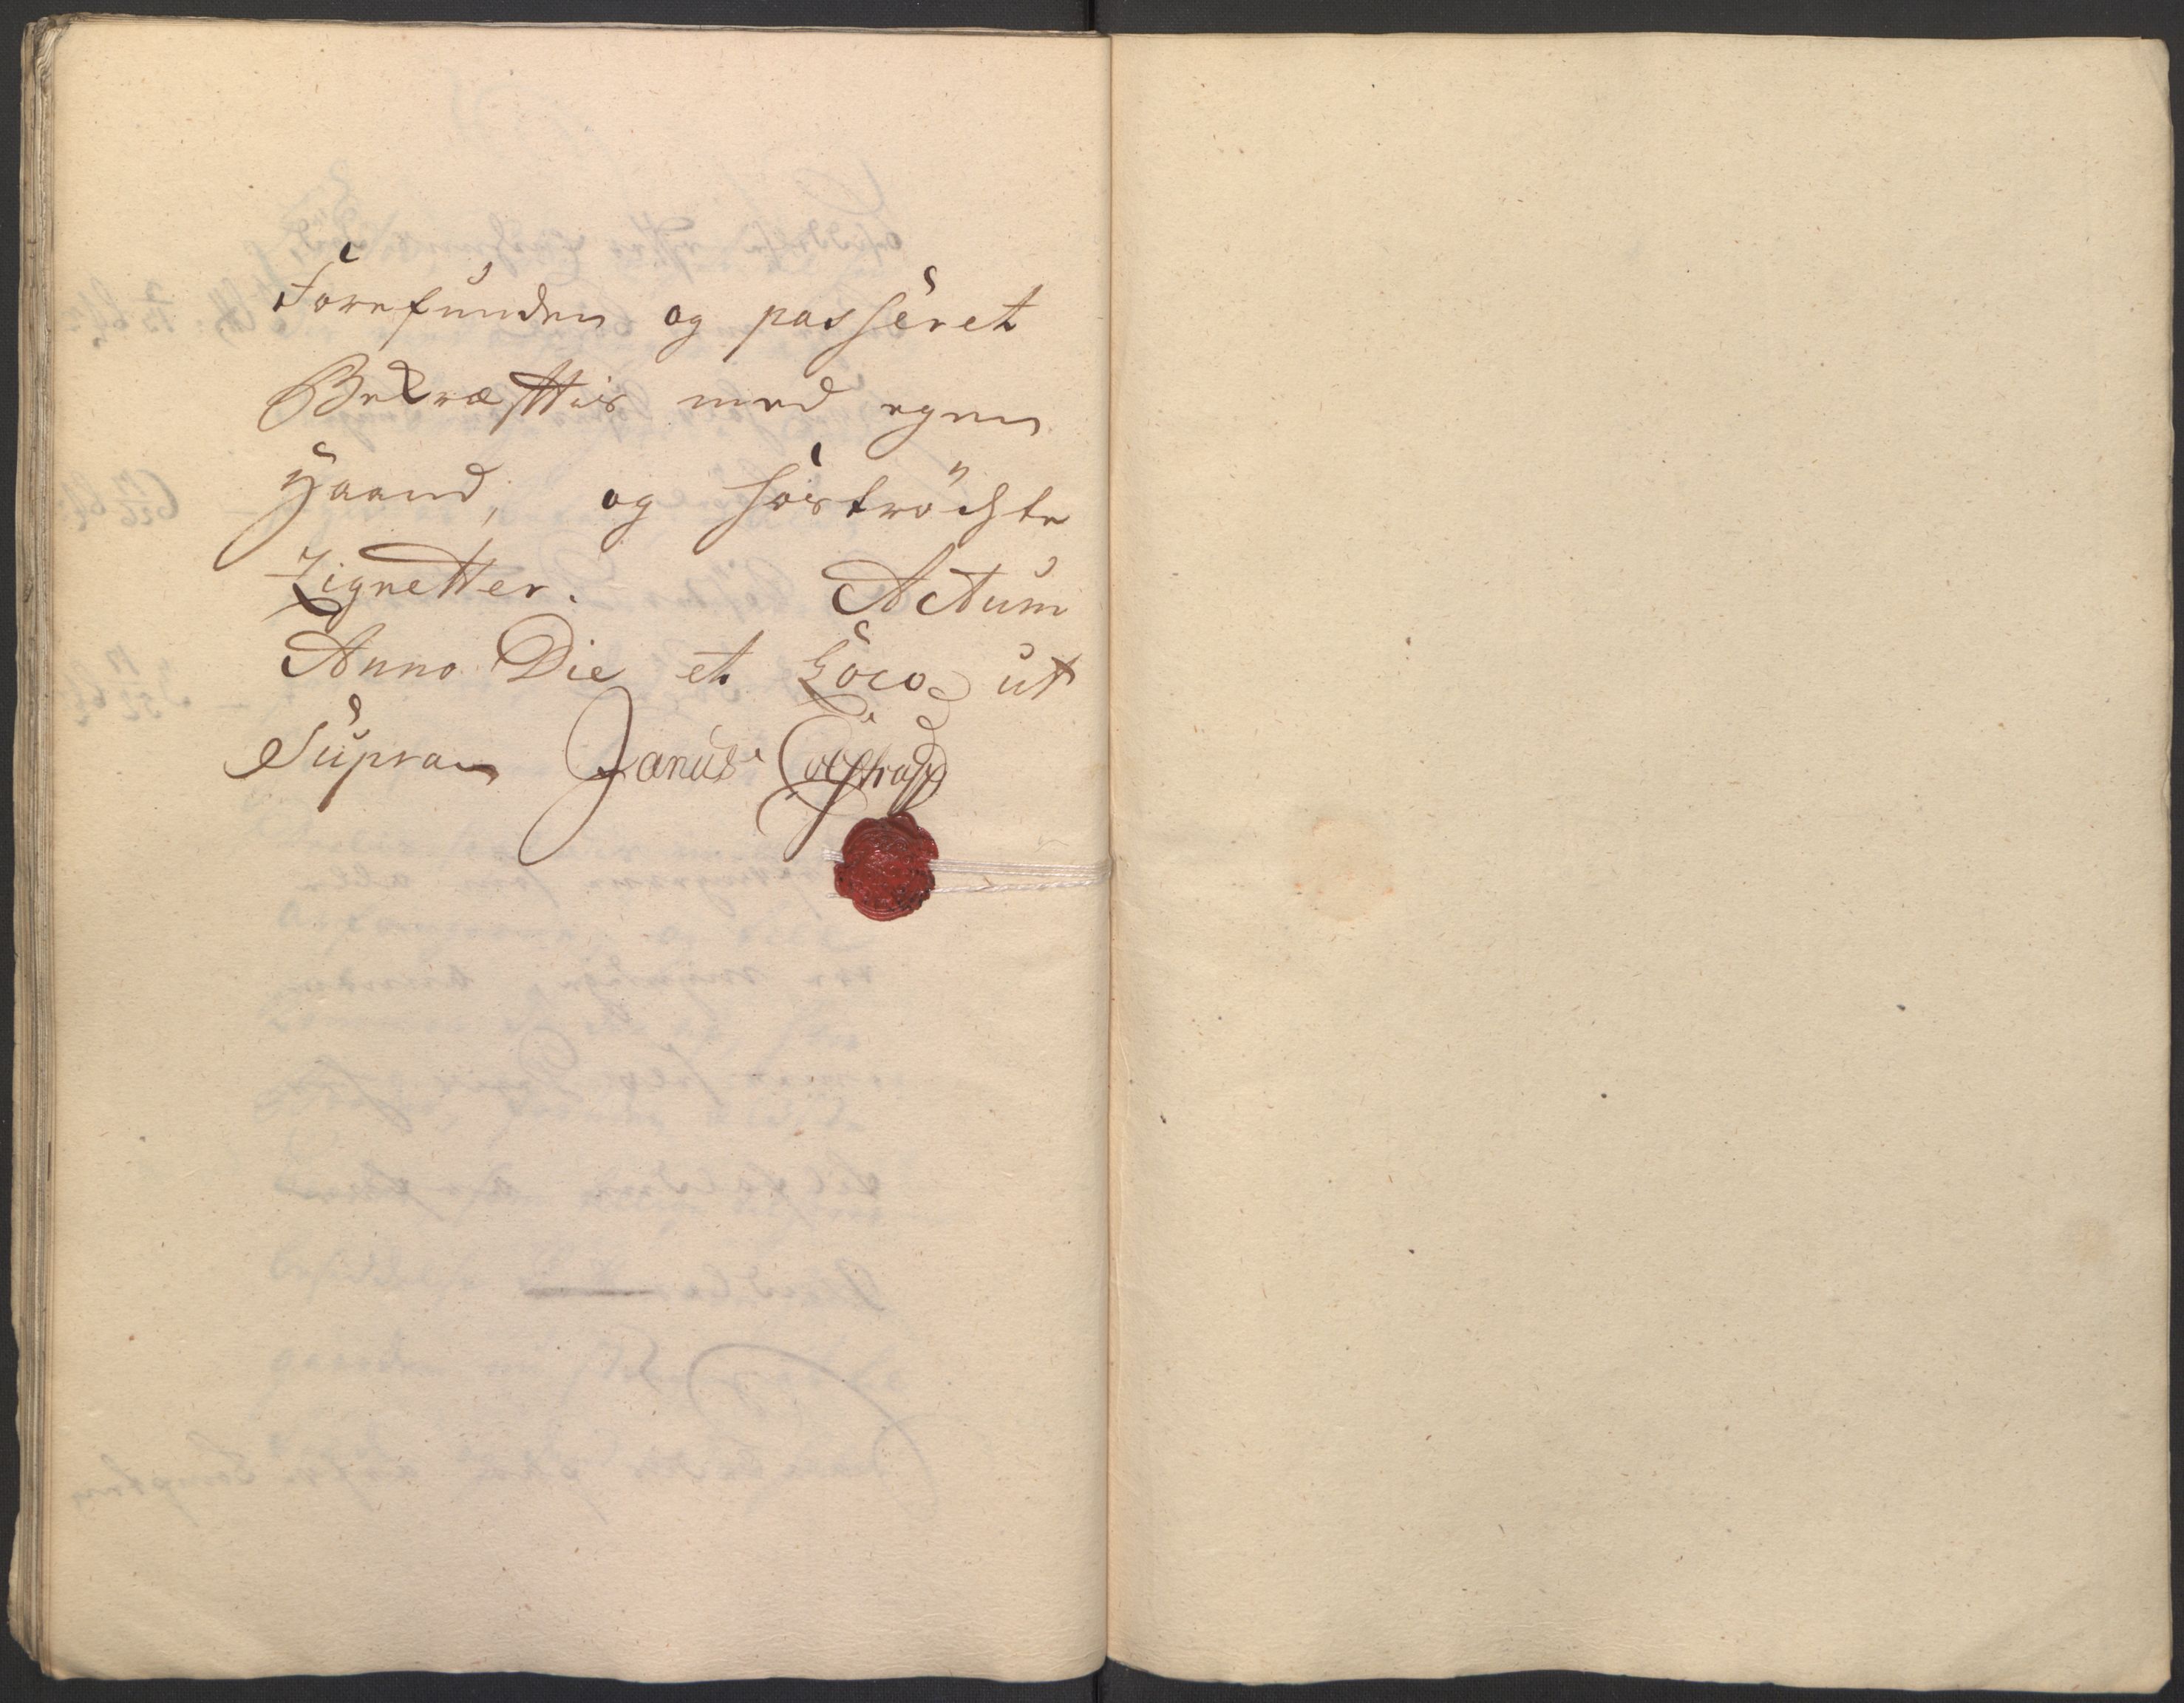 Forefunden og passeret
Bekræfftis med egen
Haand, og hoströchte
Zignetter. Actum
Anno Die et Loco ut
Supra Janus